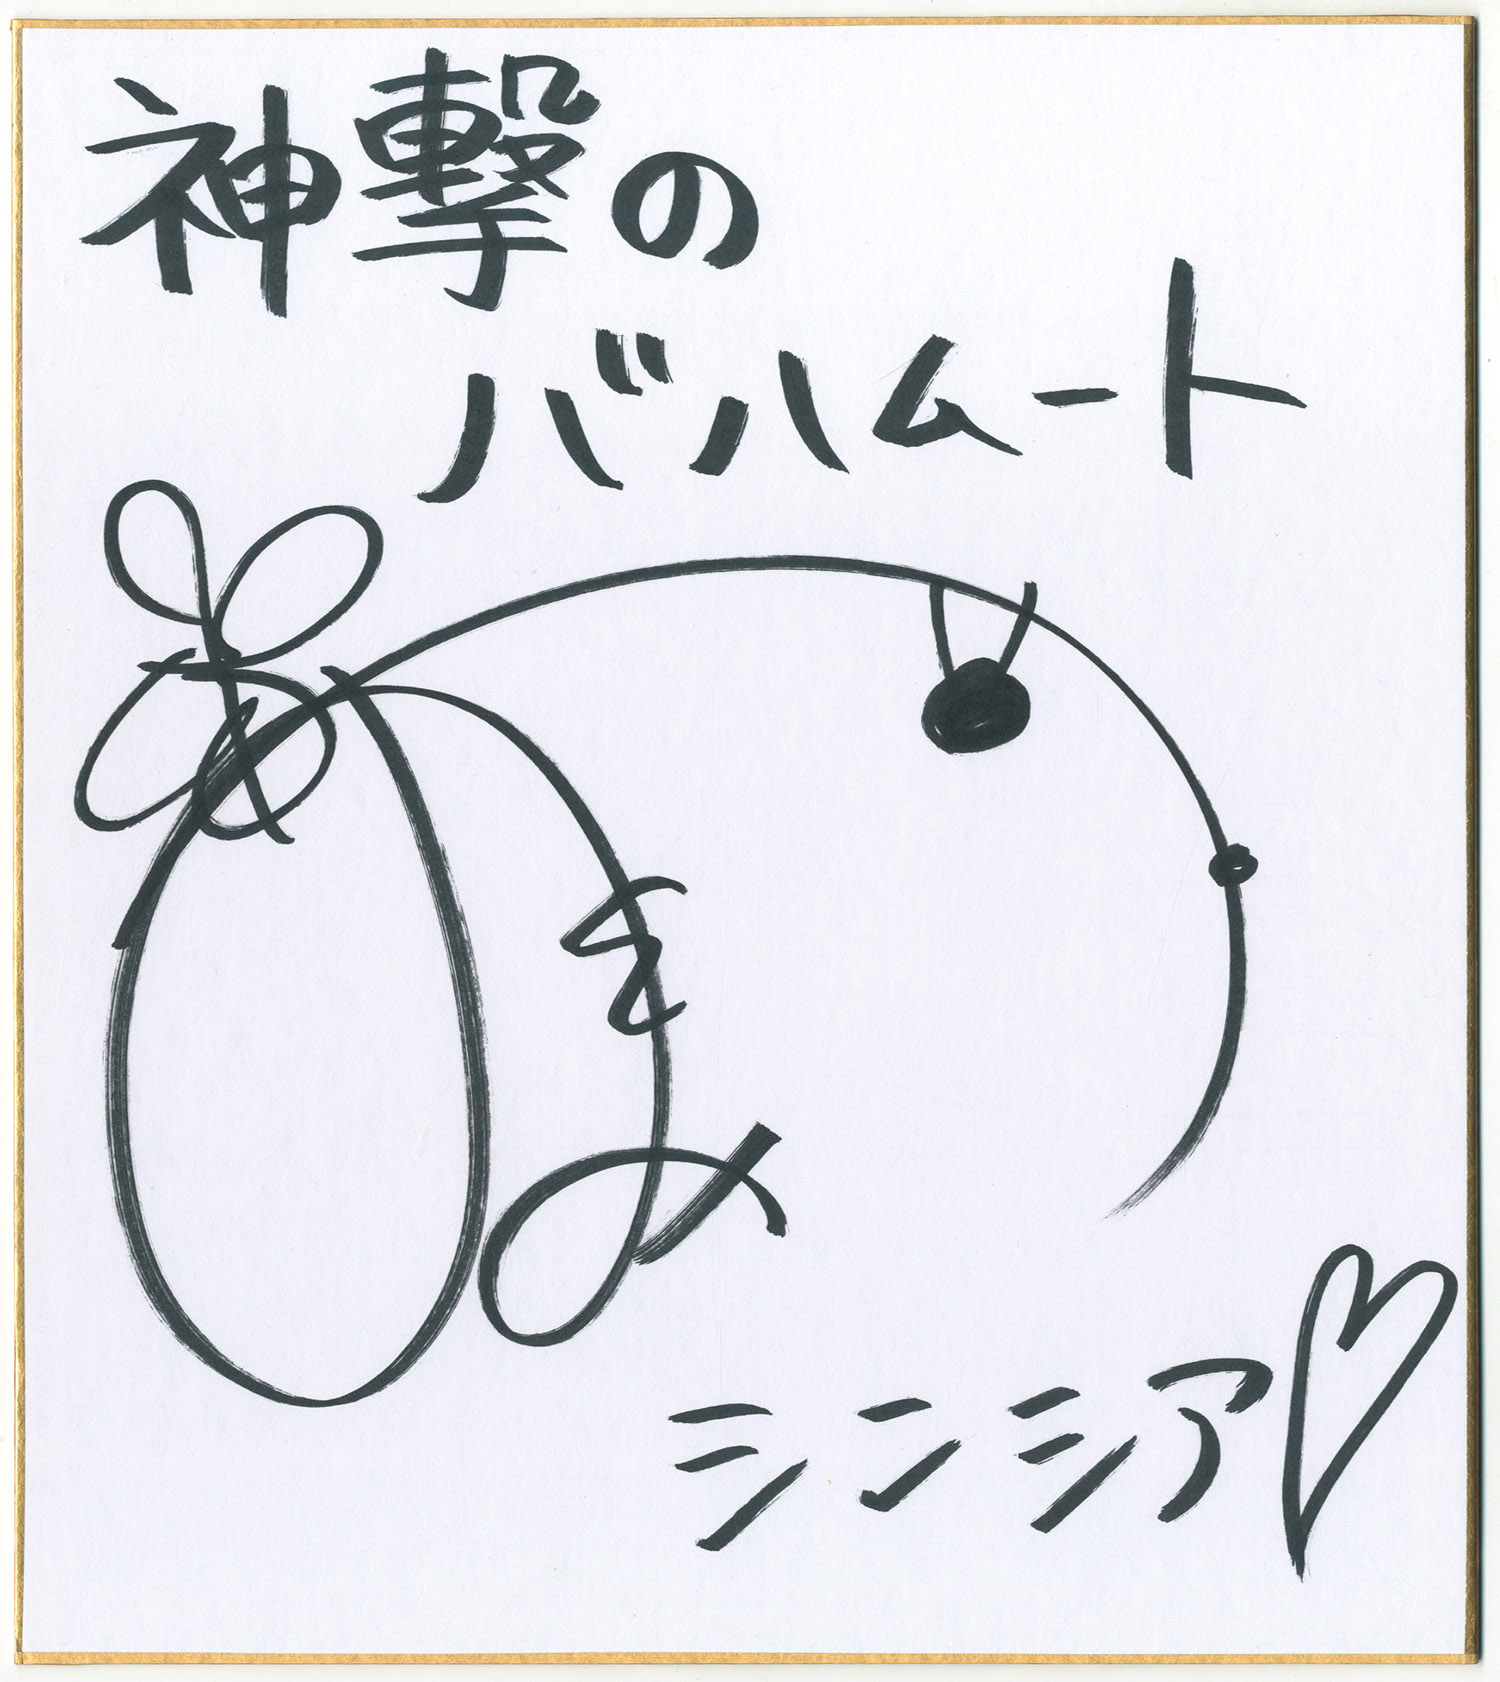 神撃の
バハムート
シンシア♡